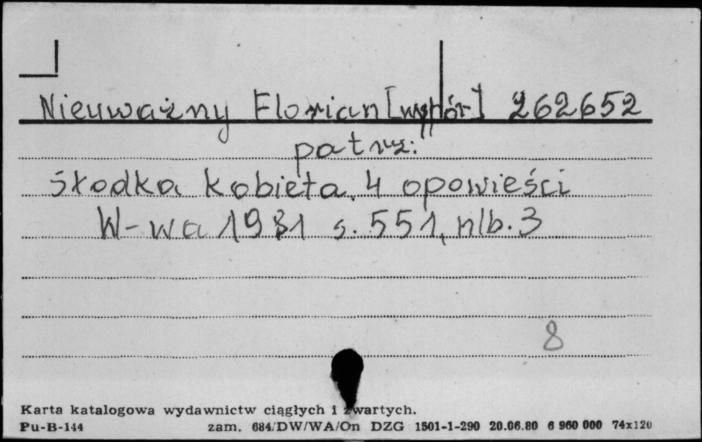 Nieuważny Florian [wybór] 262652
patrz:
Słodka kobieta. 4 opowieści
W-wa 1981 s. 551, nlb. 3
8
Karta katalogowa wydawnictw ciągłych i zwartych.
Pu-B-144 zam. 684/DW/WA/On DZG 1501-1-290 20.06.80 6 960 000 74x120